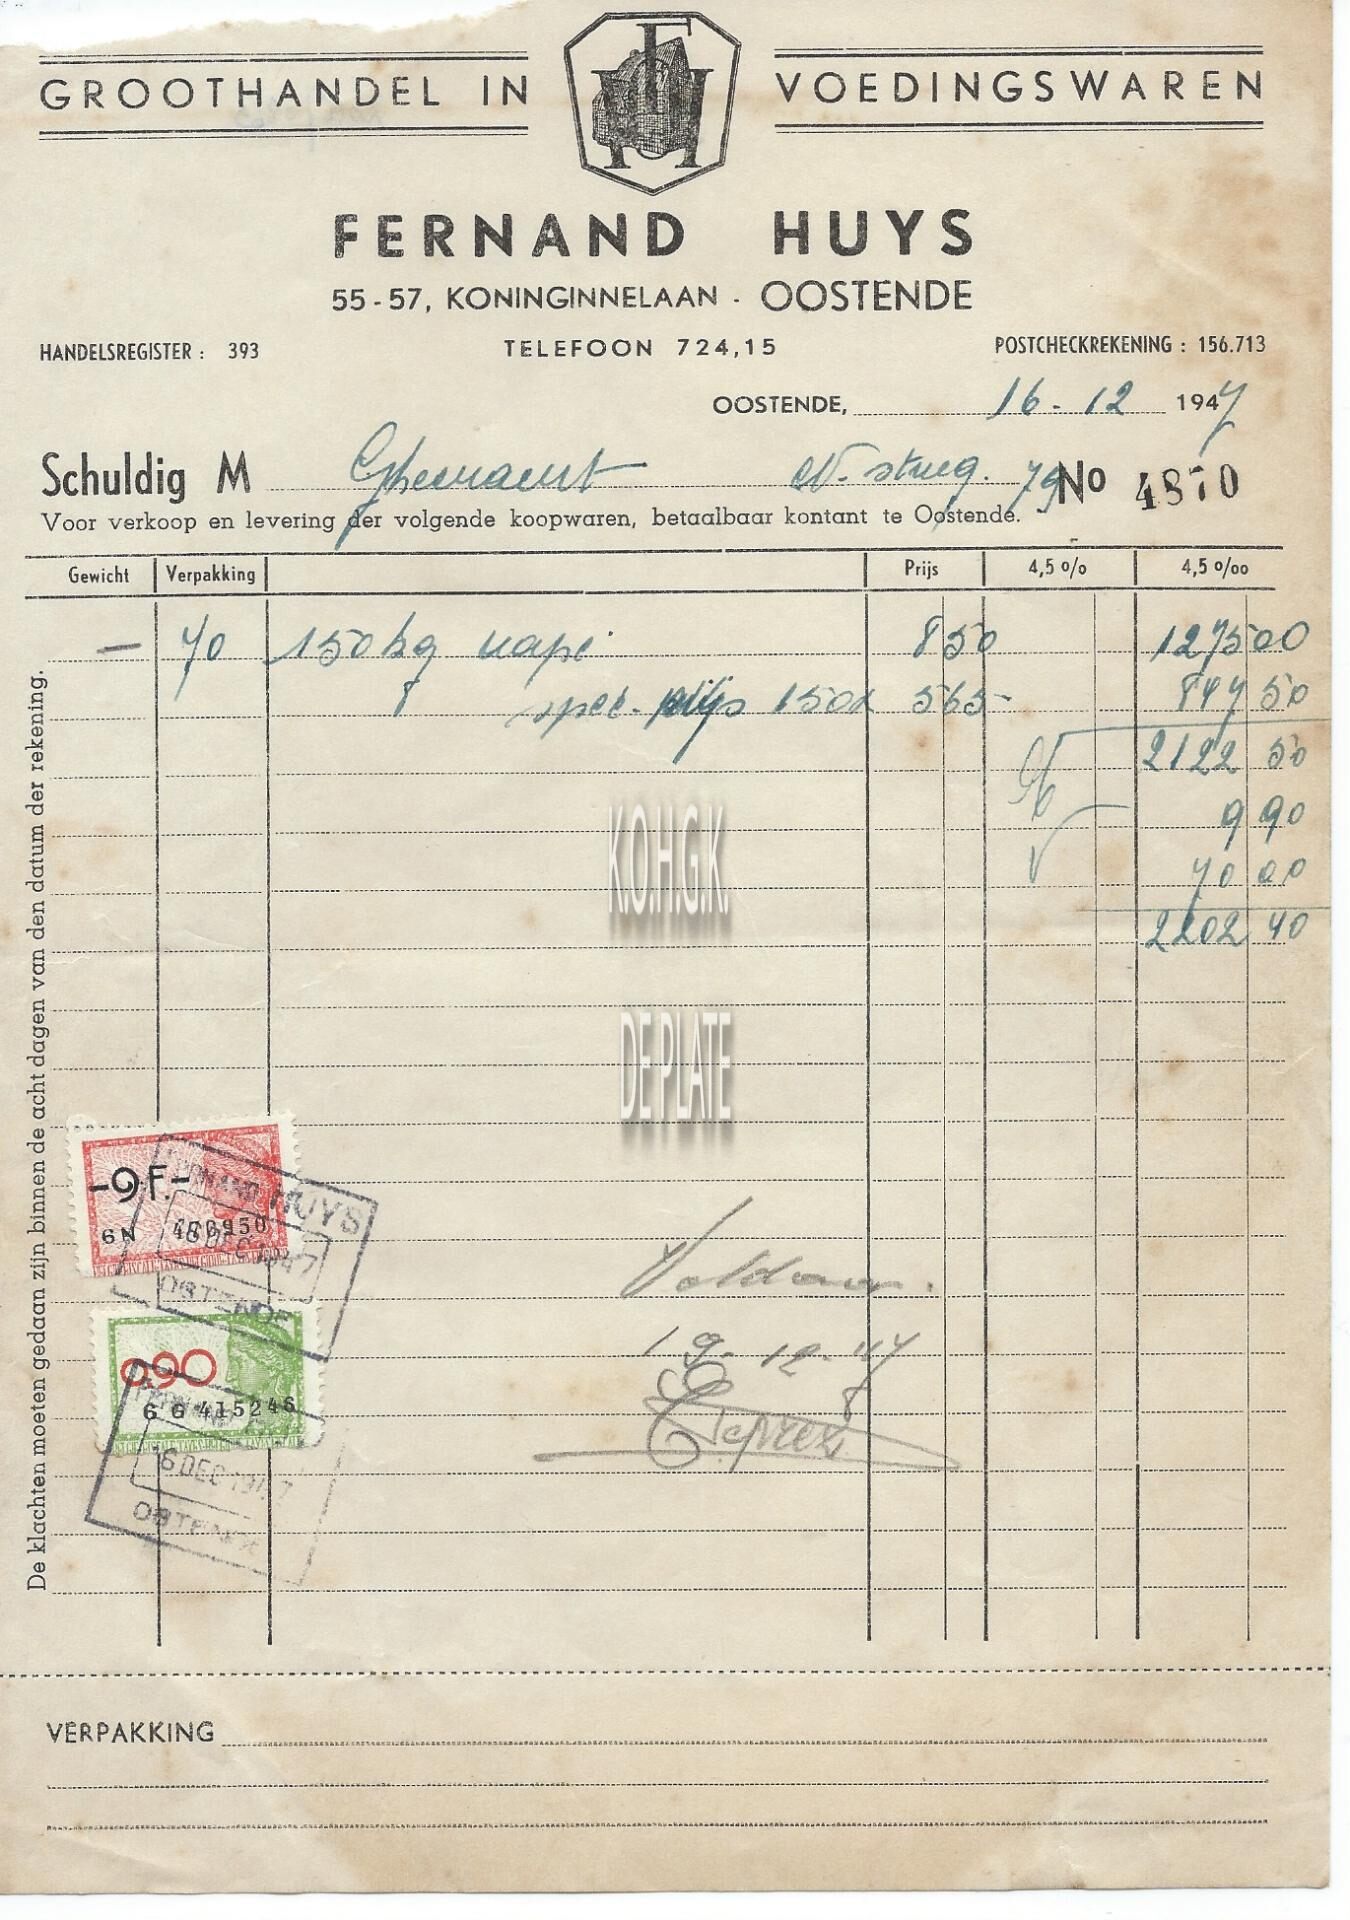 GROOTHANDEL IN VOEDINGSWAREN
FH
FERNAND HUYS
55-57, KONINGINNELAAN - OOSTENDE
HANDELSREGISTER : 393 TELEFOON 724,15 POSTCHECKREKENING : 156.713
OOSTENDE, 16-12 1947
Schuldig M 79 No 4870
Voor verkoop en levering der volgende koopwaren, betaalbaar kontant te Oostende.
Gewicht Verpakking Prijs 4,5 % 4,5 ‰
— 70 150 kg 850 1275 00
spec. prijs 150k 565- 847 50
2122 50
9 90
V 70 00
2202 40
K.O.H.G.K.
DE PLATE
De klachten moeten gedaan zijn binnen de acht dagen van den datum der rekening.
-9F.-
6N
FERNAND HUYS
16 DEC 1947
OSTENDE
Voldaan.
19-12-47
0.90
6 G 415246
FERNAND
16 DEC 1947
OSTENDE
VERPAKKING